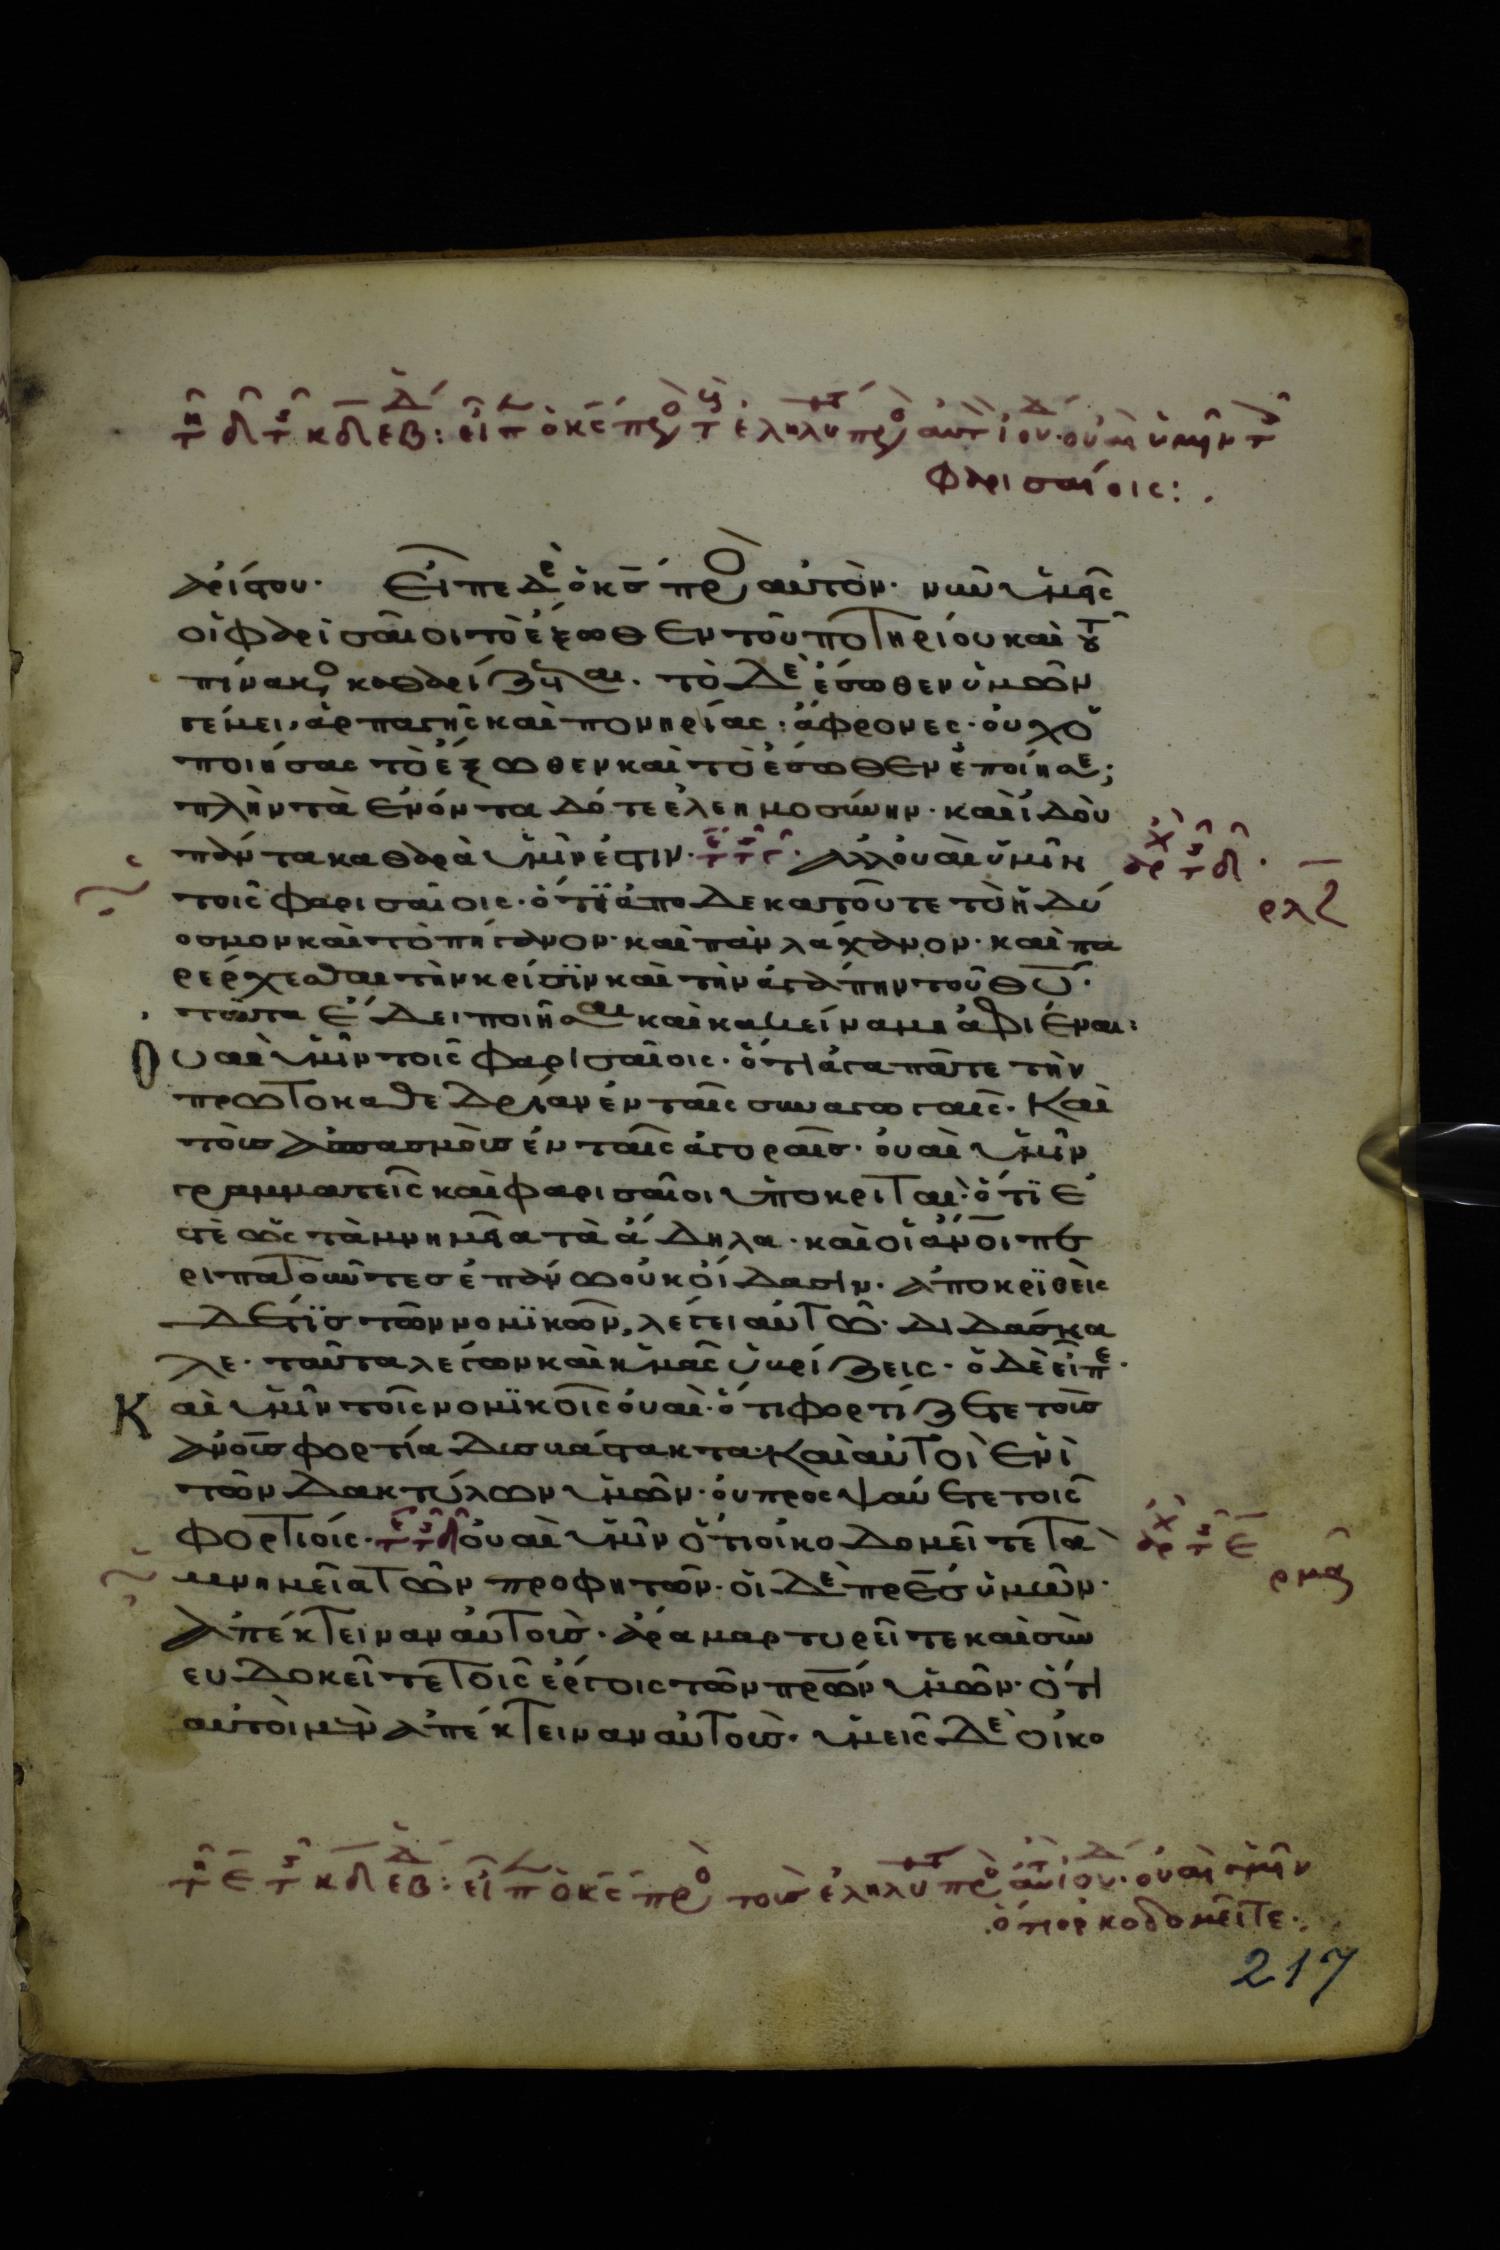 τῇ δ τῆς κδ ἑβδ: εἶπ ὁ κς πρὸς τ ἐληλυ πρὸ αυτ ιου· οὐαὶ ὑμῖν τ
Φαρισαίοις:.
ἀρίστου· Εἶπε δὲ ὁ κς πρὸ αὐτὸν· νῦν ὑμεῖς
οἱ Φαρισαῖοι τὸ ἔξωθεν τοῦ ποτηρίου καὶ τοῦ
πίνακο καθαρίζεται. τὸ δὲ ἔσωθεν ὑμῶν
γέμει, ἁρπαγῆς καὶ πονηρίας: ἄφρονες· οὐχ ὁ
ποιήσας τὸ ἔξωθεν καὶ τὸ ἔσωθεν ἐποίησε;
πλὴν τὰ ἐνόντα δότε ἐλεημοσύνην· καὶ ἰδοὺ
πάντα καθαρὰ ὑμῖν ἐστιν· ἀλλ οὐαὶ ὑμῖν
ρλζ
τοῖς Φαρισαίοις· ὅτι ἀποδεκατοῦτε τὸ ἡδύ
οσμον καὶ τὸ πήγανον· καὶ πᾶν λάχανον· καὶ πα
ρέρχεσθαι τὴν κρίσϊν καὶ τὴν ἀγάπην τοῦ θυ·
ταῦτα ἔδει ποιῆσαι κακεῖνα μὴ ἀφιέναι:
Οὐαὶ ὑμῖν τοῖς Φαρισαίοις· ὅτι ἀγαπᾶτε τὴν
πρωτοκαθεδρίαν ἐν ταῖς συναγωγαῖς. Καὶ
τοὺς ἀσπασμοὺς ἐν ταῖς ἀγοραῖς· οὐαὶ ὑμῖν
γραμματεῖς καὶ φαρισαῖοι ὑποκριταὶ· ὅτϊ ἐ
στὲ ὡς τὰ μνημεῖα τὰ ἄδηλα· καὶ οἱ ἄνοι πε
ριπατοῦντες ἐπάνω οὐκ οἴδασιν. ἀποκρϊθεὶς
δέ τϊς τῶν νομϊκῶν, λέγει αὐτῶ· διδάσκα
λε· ταῦτα λέγων καὶ ἡμᾶς ὑβρίζεις· ὁ δὲ εἶπε·
Καὶ ὑμῖν τοῖς νομϊκοῖς οὐαὶ· ὅτι φορτίζετε τοὺς
ἀνους φορτία δυσβάστακτα· Καὶ αὐτοὶ ἑνὶ
τῶν δακτύλων ὑμῶν· οὐ προσψαύετε τοῖς
φορτίοις· οὐαὶ ὑμῖν ὅτι οἰκοδομεῖτε τὰ
ρμα
μνημεῖα τῶν προφητῶν· οἱ δὲ πρες ὑμῶν·
ἀπέκτειναν αὐτοὺς· ἄρα μαρτυρεῖτε καὶ συν
ευδοκεῖτε τοῖς ἔργοις τῶν πρων ὑμῶν· ὅτι
αὐτοὶ μὲν ἀπέκτειναν αὐτοὺς· ὑμεῖς δὲ οἰκο
τῇ ε τῆς κδ ἑβδ: εἶπ ὁ κς πρὸ τοὺς ἐληλυ πρὸ αὐτ ιου· οὐαὶ ὑμῖν
ὅτι οἰκοδομεῖτε·
217